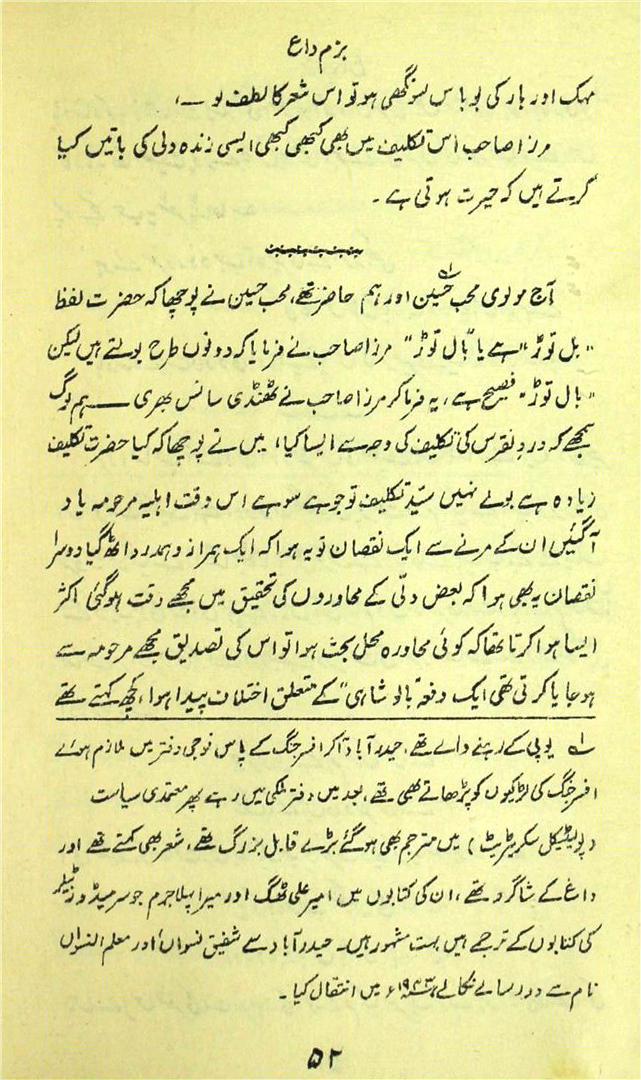 بزم داغ
مہک اور ہار کی بو باس سونگھی ہو تو اس شعر کا لطف لو ۔،
مرزا صاحب اس تکلیف میں بھی کبھی کبھی ایسی زندہ دلی کی باتیں کیا
کرتے ہیں کہ حیرت ہوتی ہے ۔
آج مولوی محب حسین لہ اور ہم حاضر تھے، محب حسین نے پوچھا کہ حضرت لفظ
"بل توڑ" ہے یا "بال توڑ" مرزا صاحب نے فرمایا کہ دونوں طرح بولتے ہیں لیکن
"بال توڑ" فصیح ہے، یہ فرما کر مرزا صاحب نے ٹھنڈی سانس بھری ۔ ہم لوگ
سمجھے کہ درد نقرس کی تکلیف کی وجہ سے ایسا کیا، میں نے پوچھا کہ کیا حضرت تکلیف
زیادہ ہے بولے نہیں سیّد تکلیف تو جو ہے سو ہے اس وقت اہلیہ مرحومہ یاد
آ گئیں ان کے مرنے سے ایک نقصان تو یہ ہوا کہ ایک ہمراز و ہمدرد اٹھ گیا دوسرا
نقصان یہ بھی ہوا کہ بعض دلّی کے محاوروں کی تحقیق میں مجھے دقت ہو گئی اکثر
ایسا ہوا کرتا تھا کہ کوئی محاورہ محل بحث ہوا تو اس کی تصدیق مجھے مرحومہ سے
ہو جایا کرتی تھی ایک دفعہ "بالو شاہی" کے متعلق اختلاف پیدا ہوا، کچھ کہتے تھے
لہ یوپی کے رہنے والے تھے، حیدرآباد آ کر افسر جنگ کے پاس فوجی دفتر میں ملازم ہوئے
افسر جنگ کی لڑکیوں کو پڑھاتے بھی تھے، بعد میں دفتر ملکی میں رہے پھر معتمدی سیاست
(پولیٹیکل سکریٹریٹ) میں مترجم بھی ہو گئے بڑے قابل بزرگ تھے، شعر بھی کہتے تھے اور
داغ کے شاگرد تھے، ان کی کتابوں میں امیر علی ٹھگ اور میرا پہلا جرم جو سر میڈوز ٹیلر
کی کتابوں کے ترجمے ہیں بہت مشہور ہیں۔ حیدرآباد سے شفیق نسواں اور معلم النسواں
نام سے دو رسالے نکالے، میں انتقال کیا ۔
۵۲